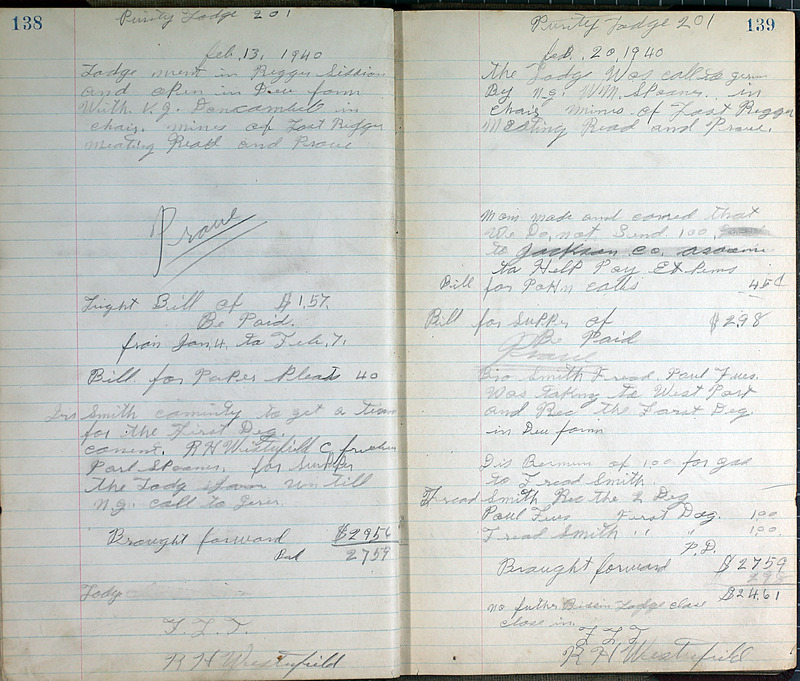 138
Purity Lodge 201
Feb, 13, 1940
Lodge ment in Regger Sission
and open in Due form
With V.g. in
chair. mines of Last Regger
Meating Read and Prove
Prove
Light Bill of $1.57
Be Paid.
from Jan, 4, to Feb, 7,
Bill for Paper Pleats 40
Smith to get a Team
for the First Deg.
coment. R H Westefield C
Porl Spooner. for Supper
the Lodg un till
N.g. call to
Brought forward $2956
Bal 2759
Lodg
F. L. T.
R H Westefield
139
Purity Lodge 201
Feb, 20, 1940
the Lodge Was call to
By N.g. WM. Spooner. in
chair mines of Last Regger
Meating Read and Prove.
Mom made and cared that
We Do, not Send 100,
to Jackson, co,
to Help Pay Ex Pims
Bill for Pokn calls 45¢
Bill for Supper of $298
Be Paid
Prove
Bro Smith Fread. Paul Fues.
Was taking to West Port
and Rec the Farst Deg
in Due form
Dis of 100 for gas
to Fread Smith.
Fread Smith Rec the 2 Deg
Paul Fues First Dag. 100
Fread Smith " " 100.
P.D.
Braught forward $2759
298
$2461
no futher Bissin Lodge close
close in.
F L T
R H Westefield